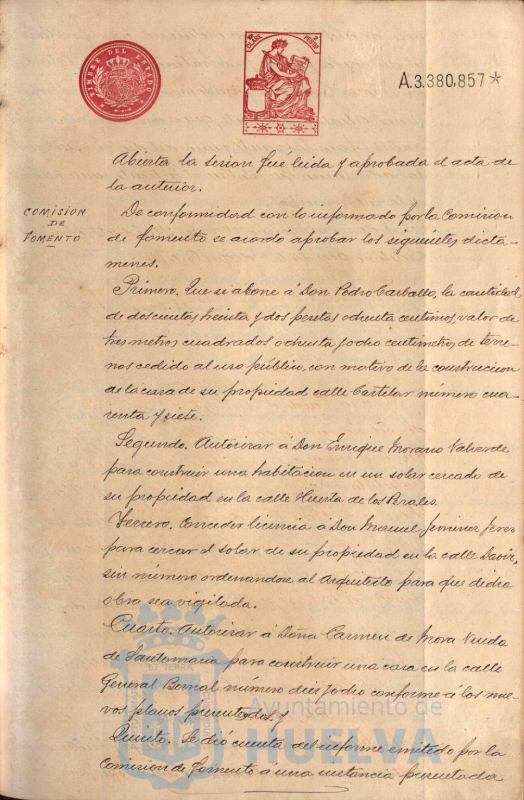 TIMBRE DEL ESTADO
CLASE
A.3.380.857*
Abierta la sesion fué leida y aprobada el acta de
la anterior.
COMISION
DE
FOMENTO
De conformidad con lo informado por la Comision
de fomento se acordó aprobar los siguientes dicta-
menes.
Primero. Que se abone á Don Pedro Carballo, la cantidad
de doscientas treinta y dos pesetas ochenta centimos, valor de
tres metros cuadrados ochenta y ocho centimetros de terre-
nos cedido al uso público, con motivo de la construccion
de la casa de su propiedad calle Castelar número cua-
renta y siete.
Segundo. Autorizar á Don Enrique Morano Valverde
para construir una habitacion en un solar cercado de
su propiedad en la calle Huerta de los Perales.
Tercero. Conceder licencia a Don Manuel Jimenez Jerez
para cercar el solar de su propiedad en la calle
sin número ordenandose al Arquitecto para que dicha
obra sea vigilada.
Cuarto. Autorizar á Doña Carmen de Mora Viuda
de Santamaria para construir una casa en la calle
General Bernal número diez y ocho conforme á los nue-
vos planos presentados, y
Quinto. Se dió cuenta del informe emitido por la
Comision de fomento a una instancia presentada
Ayuntamiento de
HUELVA